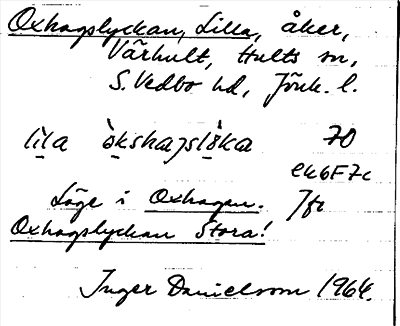 Oxhagslyckan, Lilla, åker,
Vårhult, Hults sn,
S. Vedbo hd, Jönk. l.
70
ek6F7c
Läge i Oxhagen. Jfr
Oxhagslyckan Stora!
Inger Danielsson 1964.